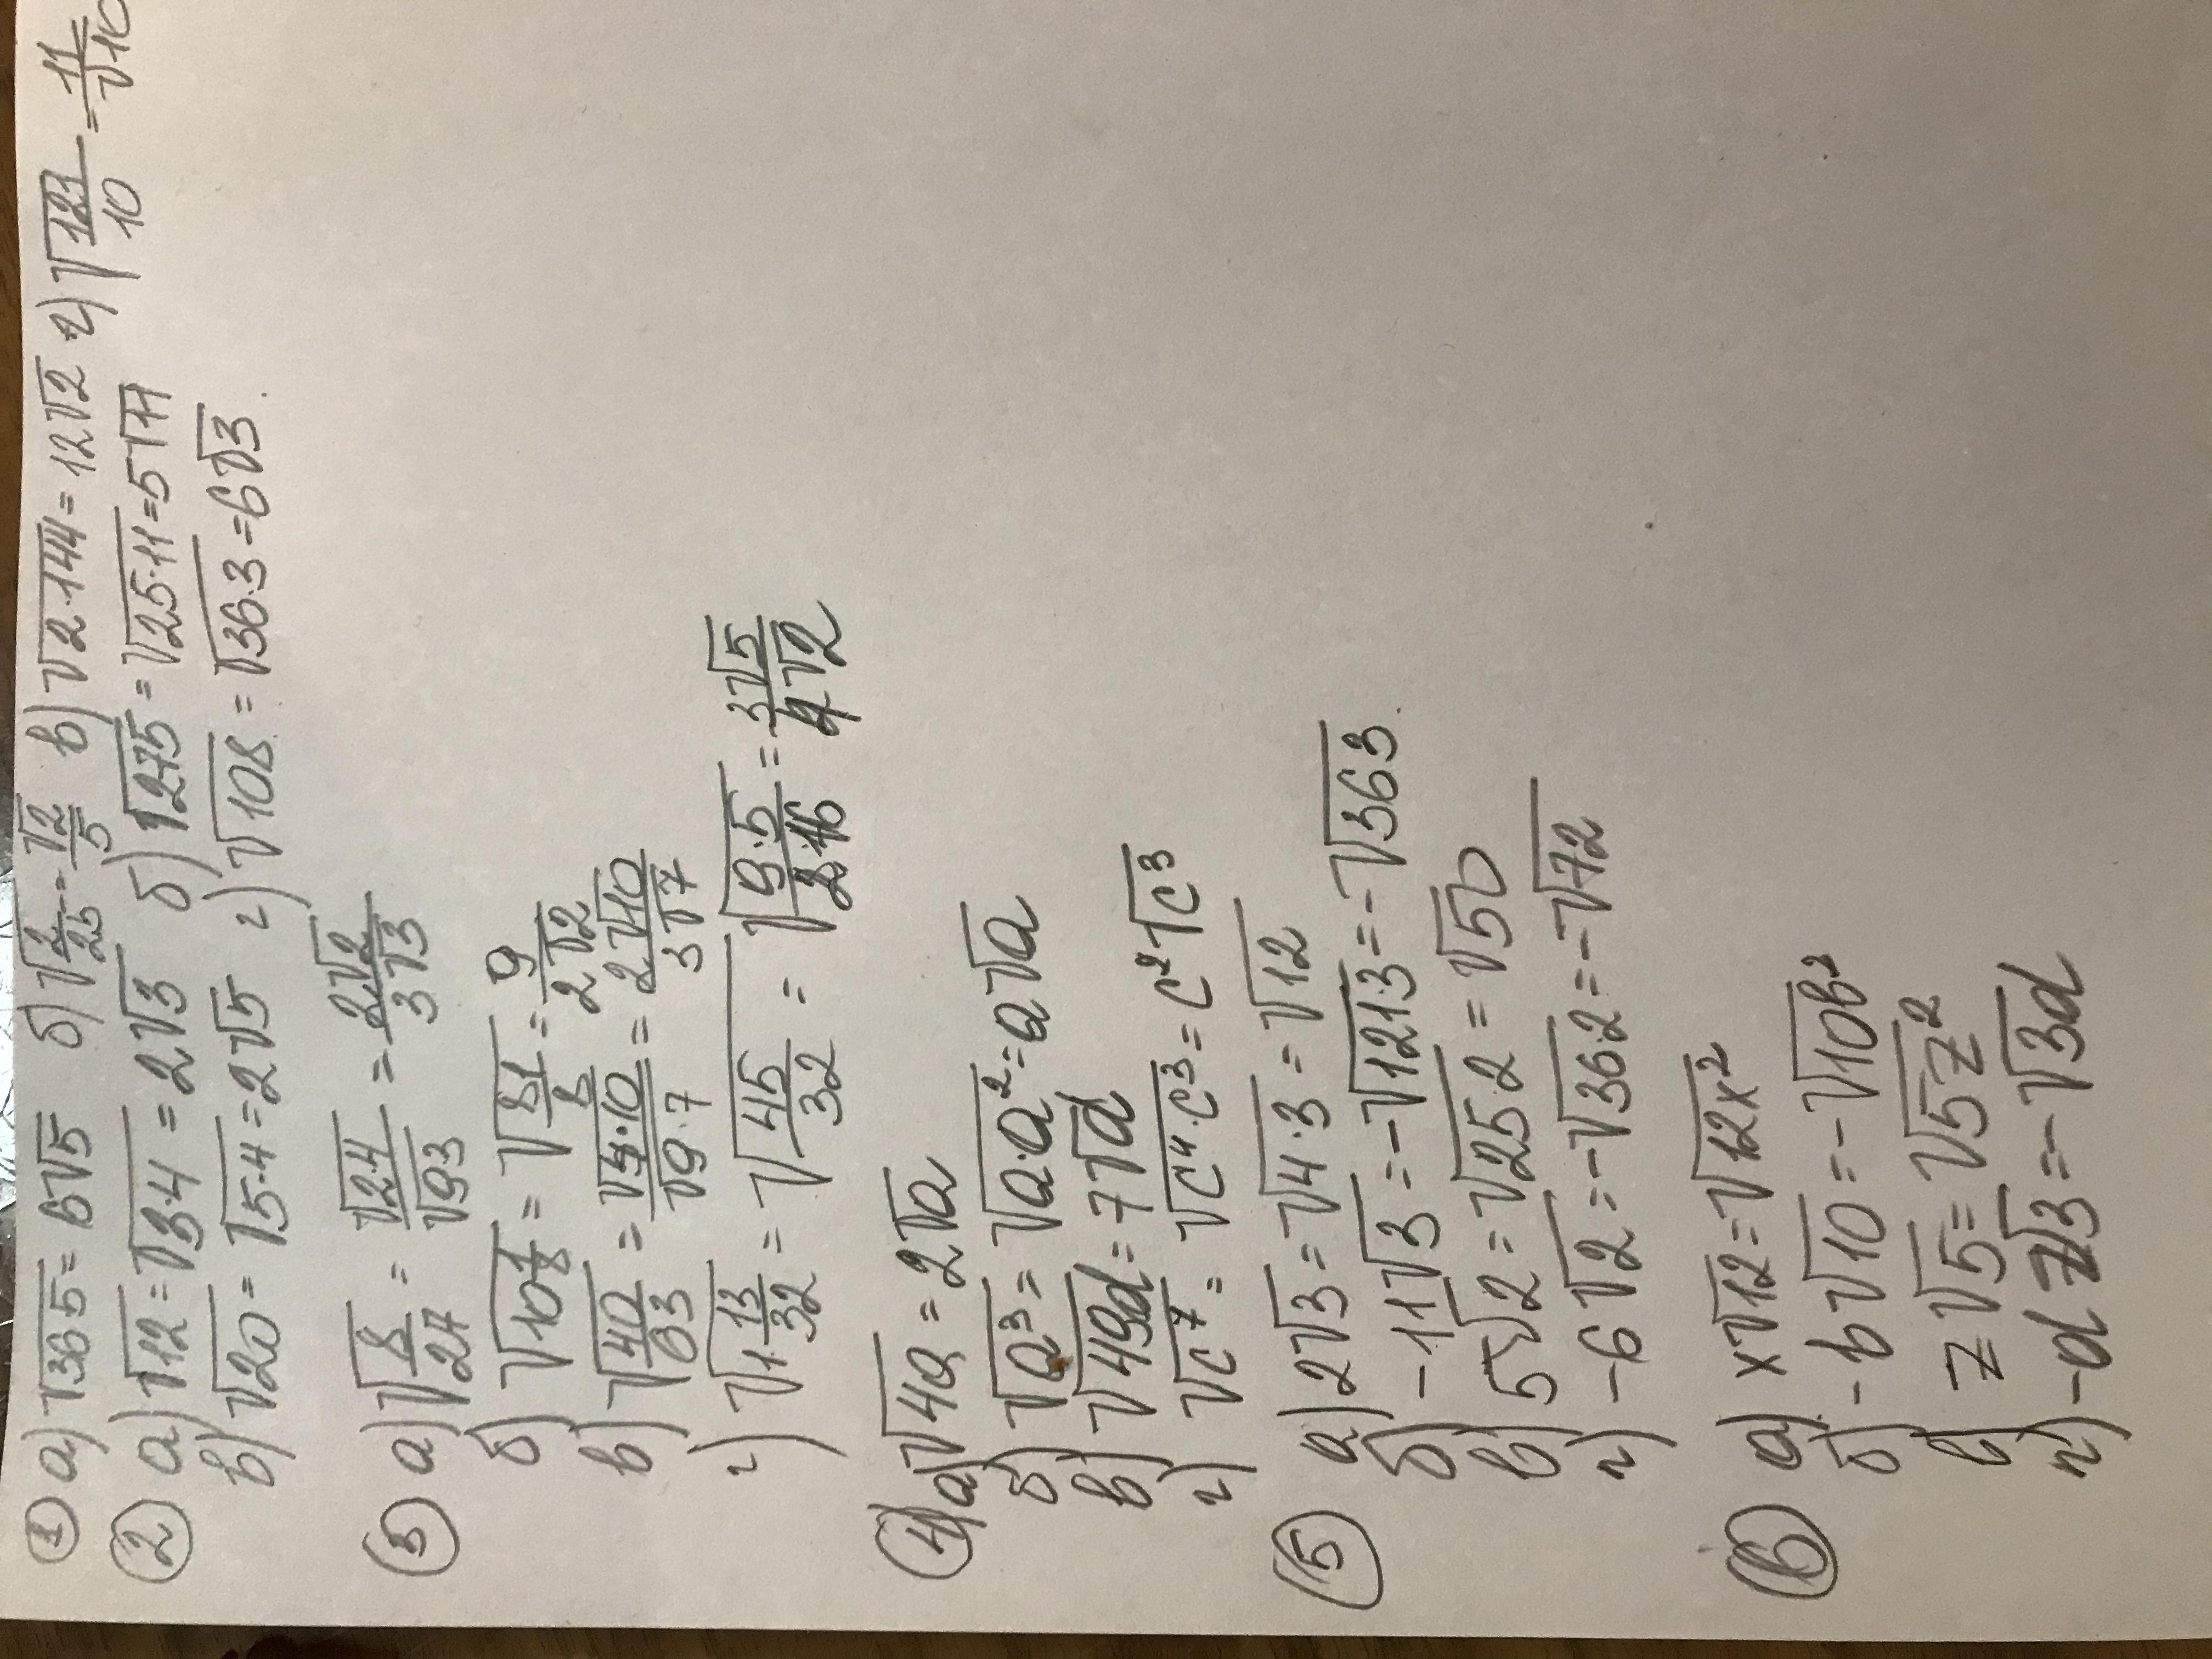 ① а) √36·5 = 6√5 б) √2/25 = √2/5 в) √2·144 = 12√2 г) √121/10 = 11/√10
② а) √12 = √3·4 = 2√3 б) √275 = √25·11 = 5√11
в) √20 = √5·4 = 2√5 г) √108 = √36·3 = 6√3
③ а) √8/27 = √2·4/√9·3 = 2√2/3√3
б) √10 1/8 = √81/8 = 9/2√2
в) √40/63 = √4·10/√9·7 = 2√10/3√7
г) √1 13/32 = √45/32 = √9·5/2·16 = 3√5/4√2
④ а) √4a = 2√a
б) √a³ = √a·a² = a√a
в) √49d = 7√d
г) √c⁷ = √c⁴·c³ = c²√c³
⑤ а) 2√3 = √4·3 = √12
б) -11√3 = -√121·3 = -√363
в) 5√2 = √25·2 = √50
г) -6√2 = -√36·2 = -√72
⑥ а) x√12 = √12x²
б) -b√10 = -√10b²
в) z√5 = √5z²
г) -d√3 = -√3d